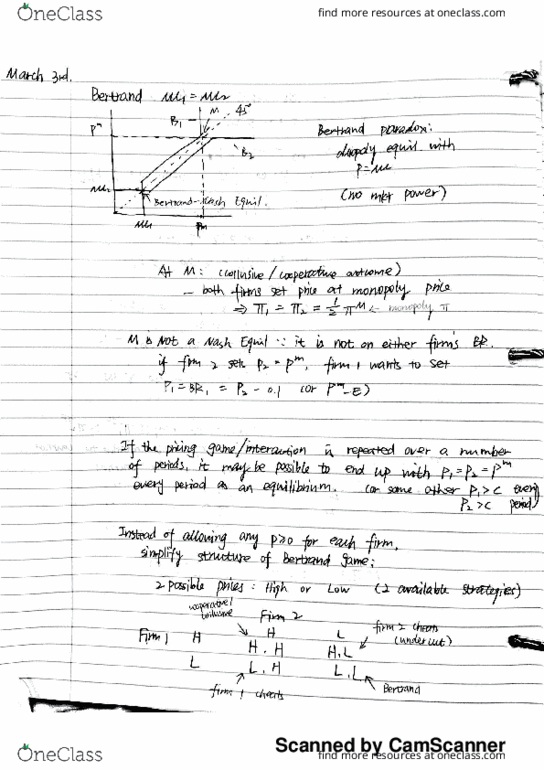 OneClass
find more resources at oneclass.com
March 3rd.
Bertrand mc1 = mc2
B1 M 45°
Pm
B2
mc2
Bertrand-Nash Equil.
mc1 Pm
Bertrand paradox:
duopoly equil with
P=mc
(no mkt power)
At M: (collusive/cooperative outcome)
– both firms set price at monopoly price
⇒ π1 = π2 = ½ πM ← monopoly π
M is Not a Nash Equil ∵ it is not on either firm's BR.
if firm 2 sets P2 = Pm, firm 1 wants to set
P1 = BR1 = P2 – 0.1 (or Pm – ε)
If the pricing game/interaction is repeated over a number
of periods, it may be possible to end up with P1 = P2 = Pm
every period as an equilibrium. (or some other P1 > c every
P2 > c period
Instead of allowing any p≥0 for each firm,
simplify structure of Bertrand game:
2 possible prices: High or Low (2 available strategies)
cooperative/
collusive
Firm 2
H L
firm 2 cheats
(undercut)
Firm 1 H H.H H,L
L L.H L.L
firm 1 cheats
Bertrand
Scanned by CamScanner
OneClass
find more resources at oneclass.com